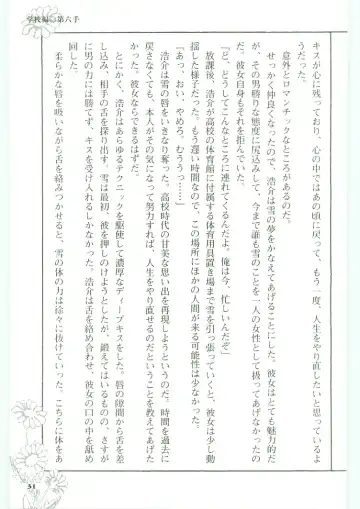 学校編◎第六手
キスが心に残っており、心の中ではあの頃に戻って、もう一度、人生をやり直したいと思っているよ
うだった。
意外とロマンチックなところがあるのだ。
せっかく仲良くなったので、浩介は雪の夢をかなえてあげることにした。彼女はとても魅力的だ
が、その男勝りな態度が災いして、今まで誰も雪のことを一人の女性として扱ってあげなかったの
だ。彼女自身もそれを拒んでいた。
「ど、どうしてこんなところに連れてくるんだよ。俺は今、忙しいんだぞ」
放課後、浩介が高校の体育館に付属する体育用具置き場まで雪を引っ張っていくと、彼女は少し動
揺した様子だった。もう遅い時間なので、この場所にほかの人間が来る可能性は少なかった。
「あっ、おい、やめろ、むううっ……」
浩介は雪の唇をいきなり奪った。高校時代の甘美な思い出を再現しようというのだ。時間を過去に
戻さなくても、本人がその気になって努力すれば、人生をやり直せるのだということを教えてあげた
かった。彼女ならできるはずだ。
とにかく、浩介はあらゆるテクニックを駆使して濃厚なディープキスをした。唇の隙間から舌を差
し込み、相手の舌を探り出す。雪は最初、彼を押しのけようとしたが、鍛えてはいるものの、さすが
に男の力には勝てず、キスを受け入れるしかなかった。浩介は舌を絡め合わせ、彼女の口の中を舐め
回した。
柔らかな唇を吸いながら舌を絡みつかせると、雪の体の力は徐々に抜けていった。こちらに体をあ
51